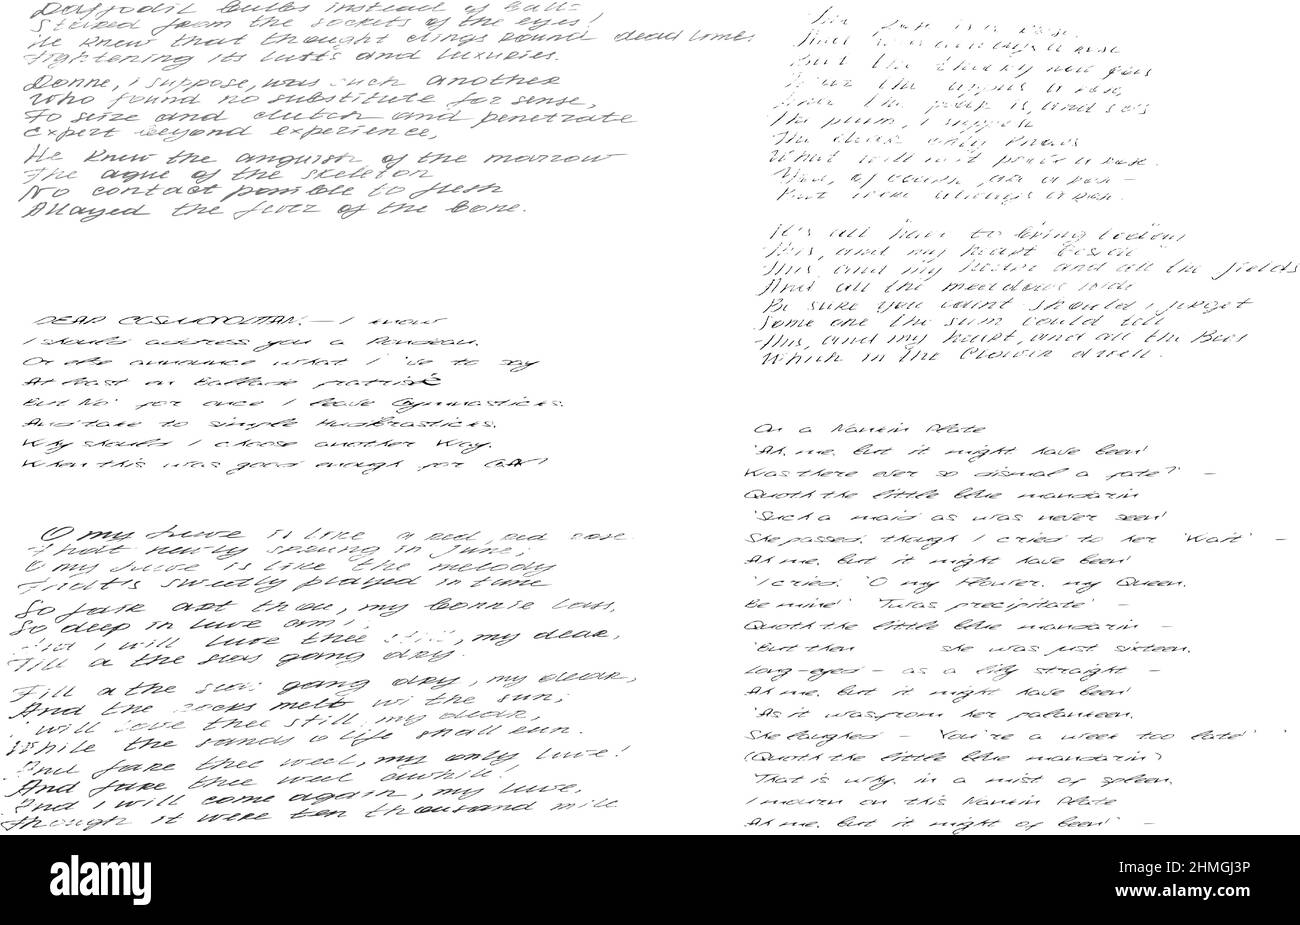 Daffodil bulbs instead of ball=
Stared from the sockets of the eyes!
He knew that thought clings round dead limbs
Tightening its lusts and luxuries.
Donne, i suppose, was such another
Who found no substitute for sense,
To seize and clutch and penetrate
Expert beyond experience,
He knew the anguish of the marrow
The ague of the skeleton
No contact possible to flesh
Allayed the fever of the bone.
DEAR COSMOPOLITAN. — I know
I should address you a Rondeau.
Or else announce what I've to say
At least en Ballade
But No: for once I leave Gymnastices
And take to simple Hudibrastices.
Why should I choose another Way.
When this was good enough for GAY?
O my Luve is like a red, red rose
That newly sprung in June;
O my Luve is like the melody
That's sweetly played in tune
So fair art thou, my bonnie lass,
So deep in luve am i;
And i will luve thee still, my dear,
Till a the seas gang dry.
Till a the seas gang dry, my dear,
And the rocks melt wi the sun;
i will love thee still, my dear,
While the sands o life shall run.
And fare thee weel, my only luve!
And fare thee weel awhile!
And i will come again, my luve,
Though it were ten thousand mile
The rose is a rose,
And was always a rose
But the theory now goes
That the apple's a rose,
And the pear is, and so's
The plum, i suppose
The dear only knows
What will next prove a rose.
You, of course, are a rose —
But were always a rose.
It's all have to bring today,
This, and my heart beside
This, and my heart and all the fields
And all the meadows wide
Be sure you count should i forget
Some one the sum could tell
This, and my heart, and all the Bees
Which in the Clover dwell.
On a Nankin Plate
'Ah, me, but it might have been!
Was there ever so dismal a fate?' —
Quoth the little blue mandarin
'Such a maid as was never seen!
She passed, though I cried to her 'Wait' —
Ah me, but it might have been!
'I cried, 'O my Flower, my Queen.
Be mine! 'Twas precipitate' —
Quoth the little blue mandarin —
'But then she was just sixteen.
Long-eyed — as a lily straight —
Ah me, but it might have been!
'As it was from her palankeen.
She laughed — 'You're a week too late!'
(Quoth the little blue mandarin)
'That is why, in a mist of spleen.
I mourn on this Nankin Plate
Ah me, but it might of been!' —
alamy
Image ID: 2HMGJ3P
www.alamy.com